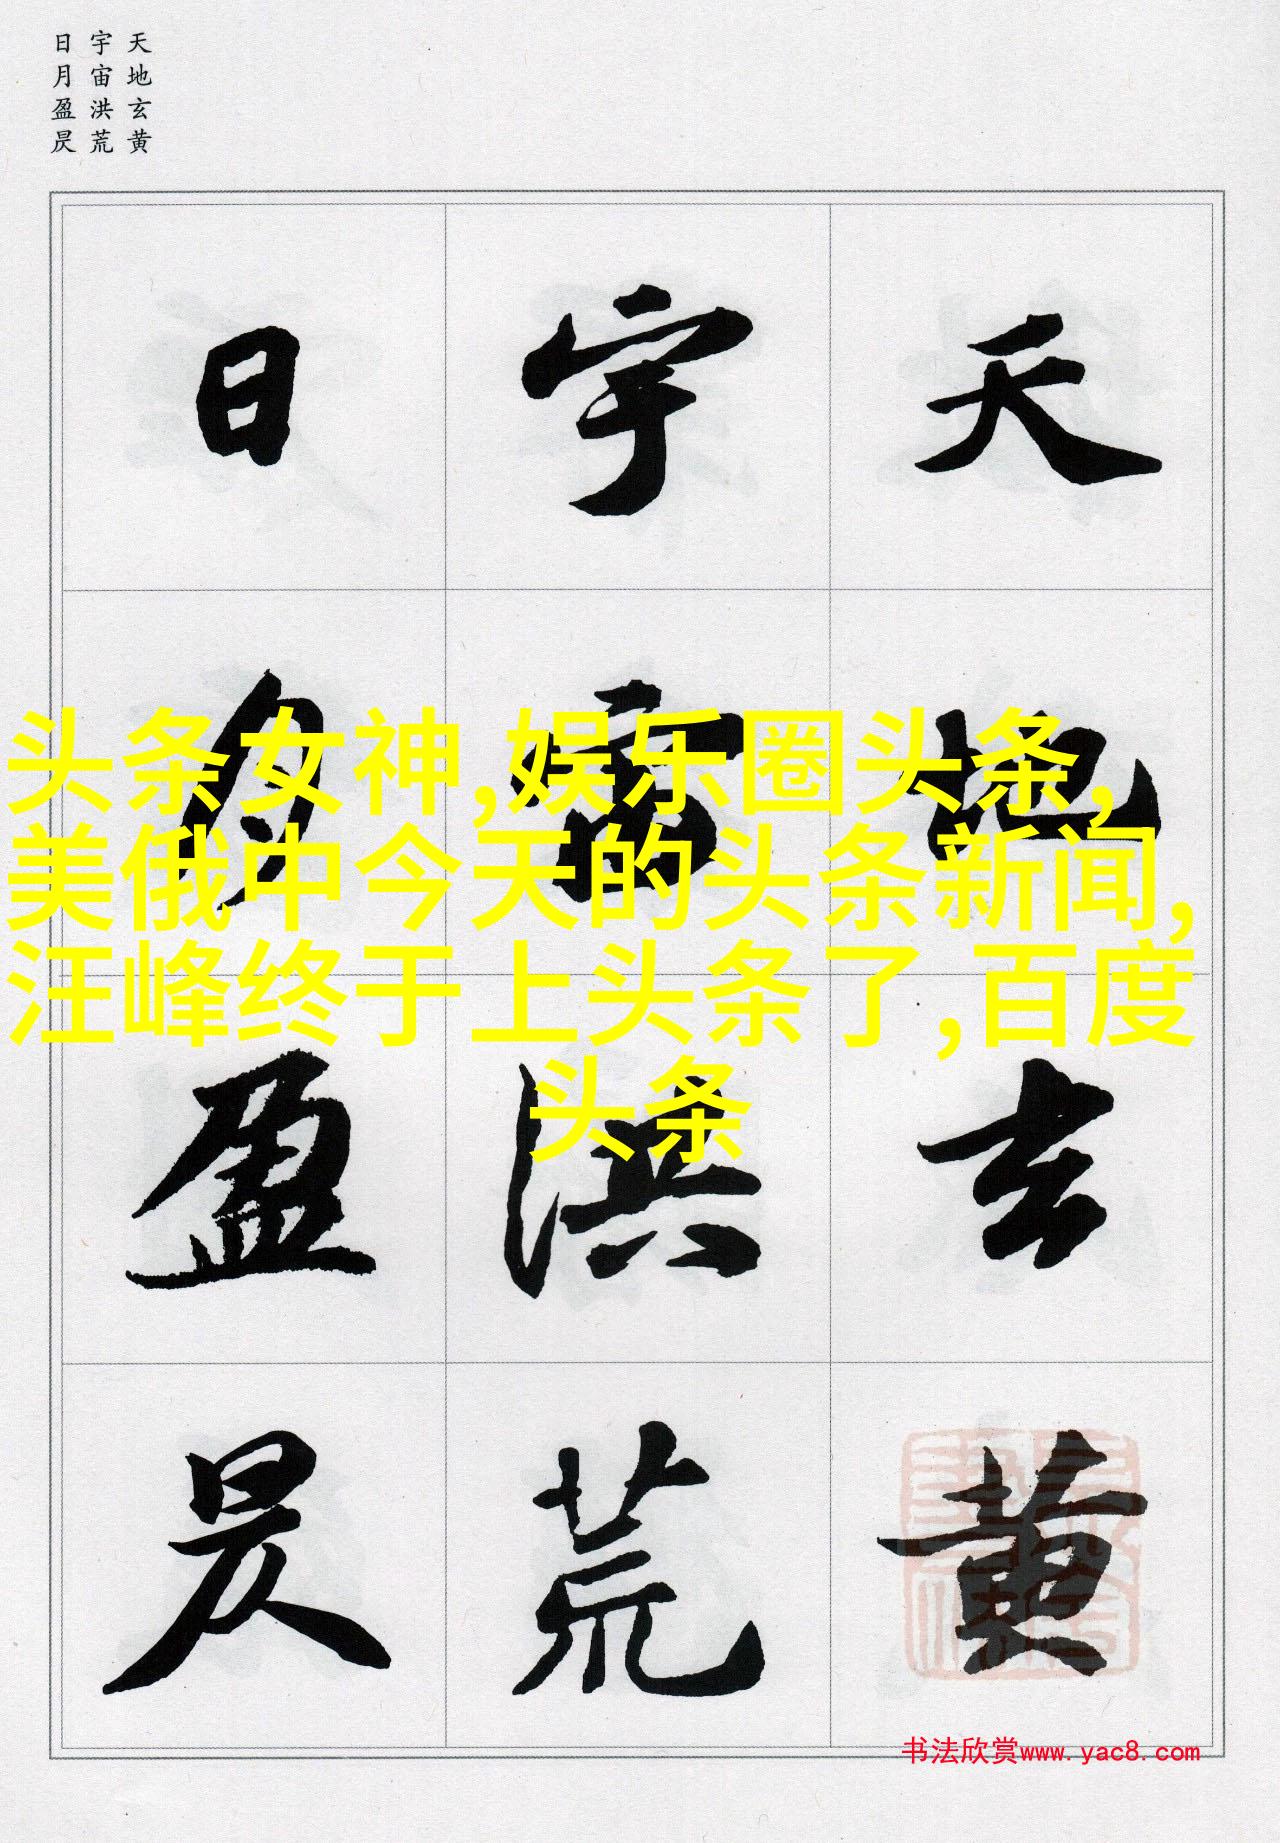 天地玄黄
宇宙洪荒
日月盈昃
天地玄黄
宇宙洪荒
日月盈昃
头条女神,娱乐圈头条,
美俄中今天的头条新闻,
汪峰终于上头条了,百度
头条
书法欣赏www.yac8.com